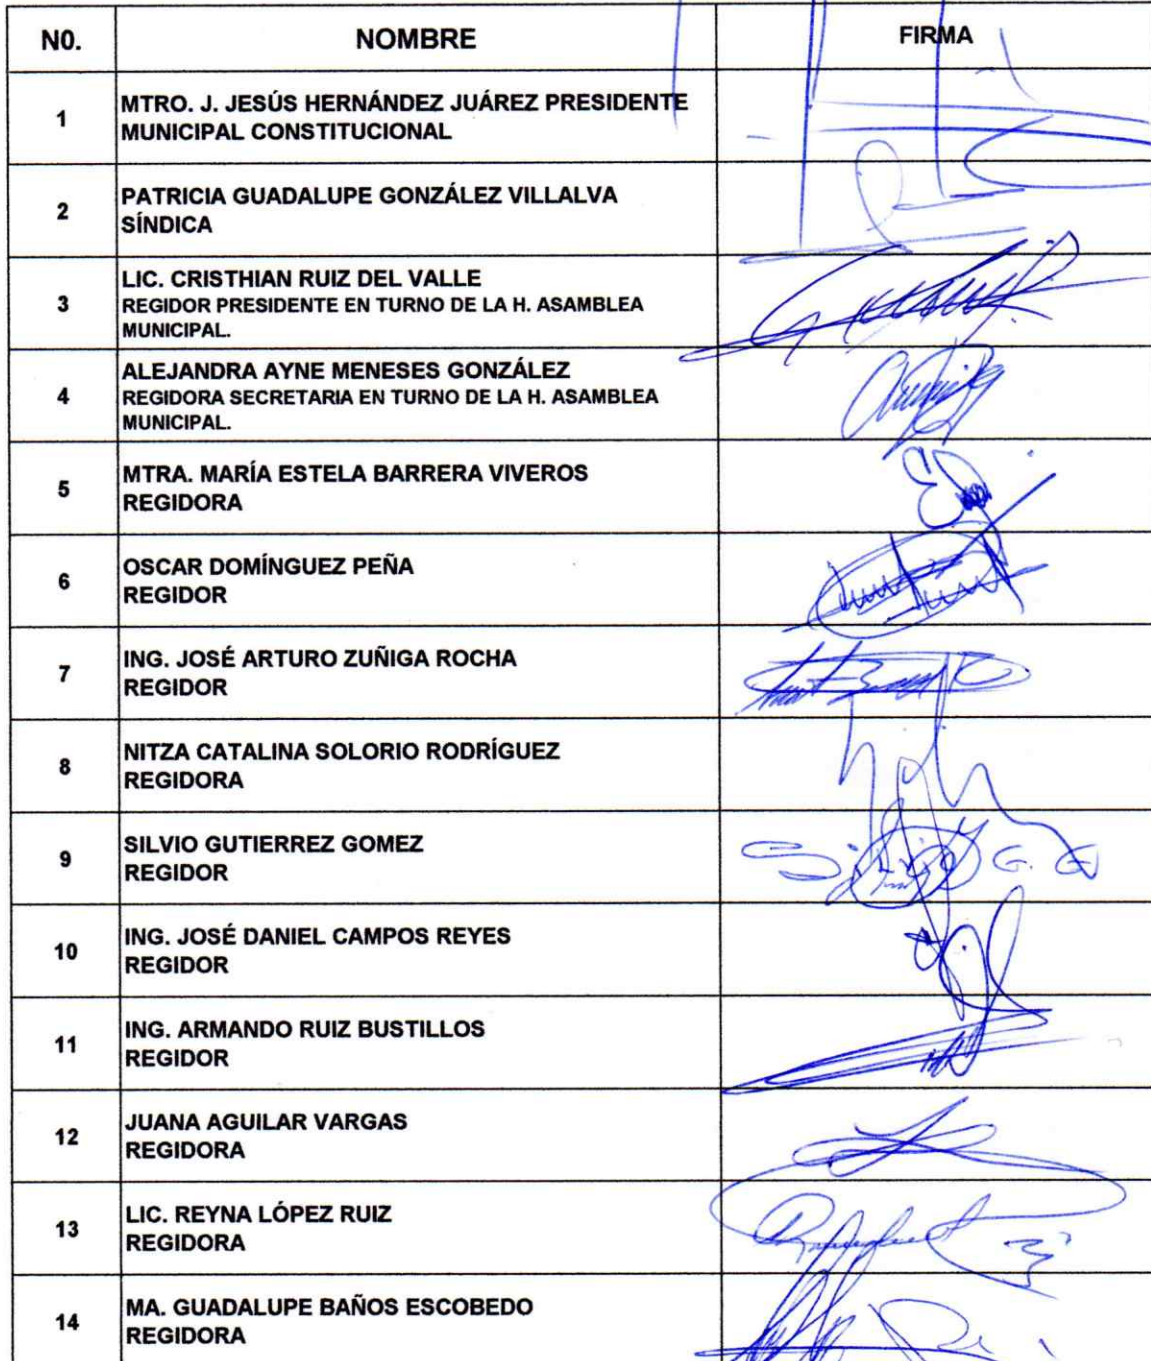 N0. NOMBRE FIRMA
1 MTRO. J. JESÚS HERNÁNDEZ JUÁREZ PRESIDENTE
MUNICIPAL CONSTITUCIONAL
2 PATRICIA GUADALUPE GONZÁLEZ VILLALVA
SÍNDICA
3 LIC. CRISTHIAN RUIZ DEL VALLE
REGIDOR PRESIDENTE EN TURNO DE LA H. ASAMBLEA
MUNICIPAL.
4 ALEJANDRA AYNE MENESES GONZÁLEZ
REGIDORA SECRETARIA EN TURNO DE LA H. ASAMBLEA
MUNICIPAL.
5 MTRA. MARÍA ESTELA BARRERA VIVEROS
REGIDORA
6 OSCAR DOMÍNGUEZ PEÑA
REGIDOR
7 ING. JOSÉ ARTURO ZUÑIGA ROCHA
REGIDOR
8 NITZA CATALINA SOLORIO RODRÍGUEZ
REGIDORA
9 SILVIO GUTIERREZ GOMEZ
REGIDOR
Silvio G. G
10 ING. JOSÉ DANIEL CAMPOS REYES
REGIDOR
11 ING. ARMANDO RUIZ BUSTILLOS
REGIDOR
12 JUANA AGUILAR VARGAS
REGIDORA
13 LIC. REYNA LÓPEZ RUIZ
REGIDORA
14 MA. GUADALUPE BAÑOS ESCOBEDO
REGIDORA